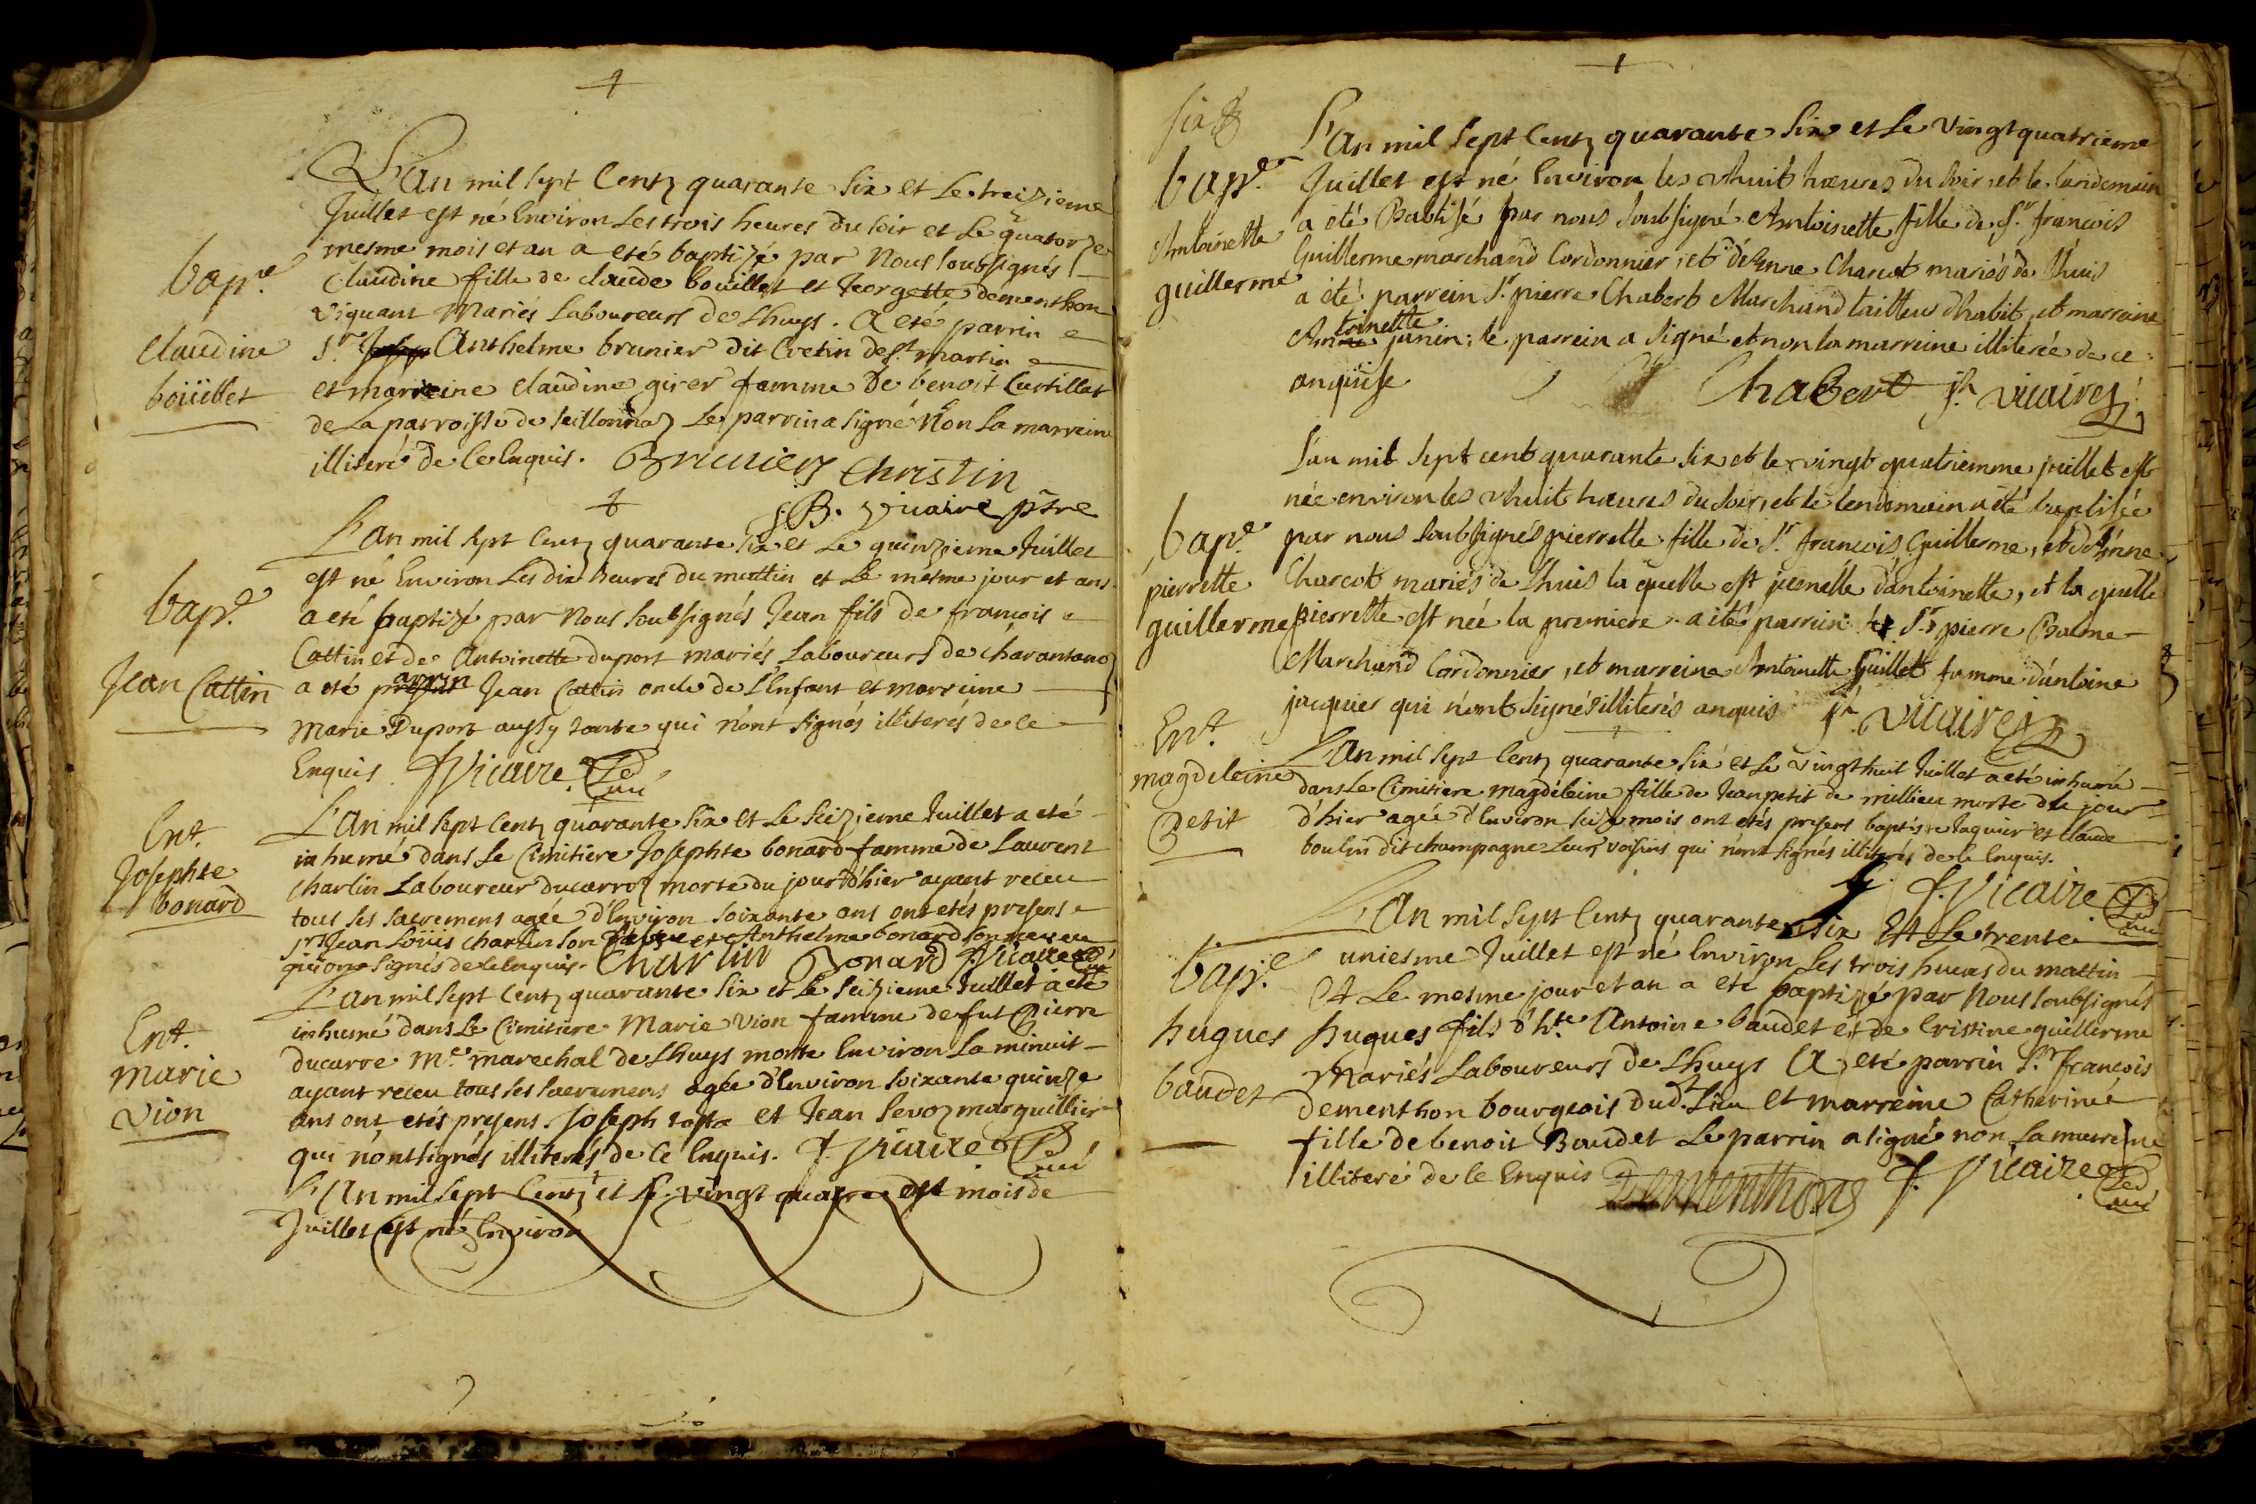 L'an mil sept Centz quarante Six et Le treizieme
Juillet est né Environ Les trois heures du soir et Le quatorze
mesme mois et an a eté baptizé par Nous soubsignés
bap.e
Claudine fille de claude bouillet et Jeorgette dementhon
viquant Mariés Laboureurs de Lhuys. a eté parrin
claudine
boüillet
Sr. Anthelme brunier dit Cretin de St martin
et marreine claudine girer famme de benoit Curtillat
de La parroisse de seillonnaz Le parrin a signé Non la marreine
illiteré de Ce Enquis. Brunier Christin
J. B. Vicaire ptre
L'an mil sept Centz quarante six et Le quinzieme Juillet
est né Environ Les dix heures du mattin et Le mesme jour et ans
bap.e
a eté baptizé par Nous soubsignés Jean fils de francois
Cattin et de Antoinette duport mariés Laboureurs de charantano
Jean Cattin
a eté parrin Jean Cattin oncle de L'Enfant et marreine
marie Duport aussy tante qui n'ont signés illiterés de ce
Enquis J Vicaire Curé
Ent.
Josephte
bonard
L'an mil sept Centz quarante six et Le seizieme Juillet a eté
inhumé dans Le Cimitiere Josephte bonard famme de Laurent
charlin Laboureur ducarroz morte du jour d'hier ayant receu
tous ses sacremens agée d'Environ soixante ans ont etés presens
Jean Loüis charlin son et Anthelme bonard son neveu
qui ont signés de ce Enquis. Charlin Bonard J Vicaire Curé
Ent.
marie
vion
L'an mil sept Centz quarante six et Le seizieme Juillet a eté
inhumé dans Le Cimitiere Marie Vion famme de fut Pierre
ducarre Me marechal de Lhuys morte Environ La minuit
ayant receu tous ses sacremens agée d'Environ soixante quinze
ans ont etés presens. Joseph et Jean Sevoz marguillier
qui n'ont signés illiterés de Ce Enquis. J. Vicaire Curé
L'An mil sept Centz et Le vingt quatre mois de
Juillet est né Environ
six
bap.e
Antoinette
guillerme
L'an mil sept Centz quarante Six et Le vingt quatrieme
Juillet est né Environ les vhuit hœures du soir, et le landemain
a eté Babtisé par nous soubsigné Antoinette fille de Sr. francois
Guillerme marchand Cordonnier, et d'Enne Charcot mariés de Lhuis
a eté parrein Sr pierre Chabert Marchand tailleur dhabit, et marraine
Antoinette janin; le parrein a signé et non la marreine illiterée de ce
anquise Chabert Jh Vicaire
bap.e
pierrette
guillerme
L'an mil sept cent quarante six et le vingt quatriemme juillet est
née environ les vhuit hœures du soir, et le lendemain a eté baptisée
par nous soubsignés pierrette fille de Sr. francois Guillerme, et d'Enne
Charcot mariés de Lhuis la quelle est jumelle d'antoinette, et la quelle
pierrette est née la premiere. a eté parrein Sr pierre Balme
Marchand Cordonnier, et marreine Antoinette Guillet famme d'antoine
jacquier qui n'ont signés illiterés anquis Jh Vicaire
Ent.
magdeleine
Petit
L'an mil sept Centz quarante six et Le vingt huit Juillet a eté inhumé
dans Le Cimitiere Magdeleine fille de Jean petit de millieu morte du jour
d'hier agée d'Environ seize mois ont etés presens baptiste Jaquier et Claude
boulin dit champagne Leurs voisins qui n'ont signés illiterés de Ce Enquis.
J. Vicaire Curé
bap.e
hugues
baudet
L'an mil sept Centz quarante six Et Le trente
uniesme Juillet est né Environ Les trois heures du mattin
Et Le mesme jour et an a eté baptizé par Nous soubsignés
hugues fils d'hte. Antoine baudet et de Cristine guillerme
Mariés Laboureurs de Lhuys a eté parrin Sr. francois
dementhon bourgeois dud Lieu et marreine Catherine
fille de benoit Baudet Le parrin a signé non La marreine
illiteré de Ce Enquis Dementhon J. Vicaire Curé